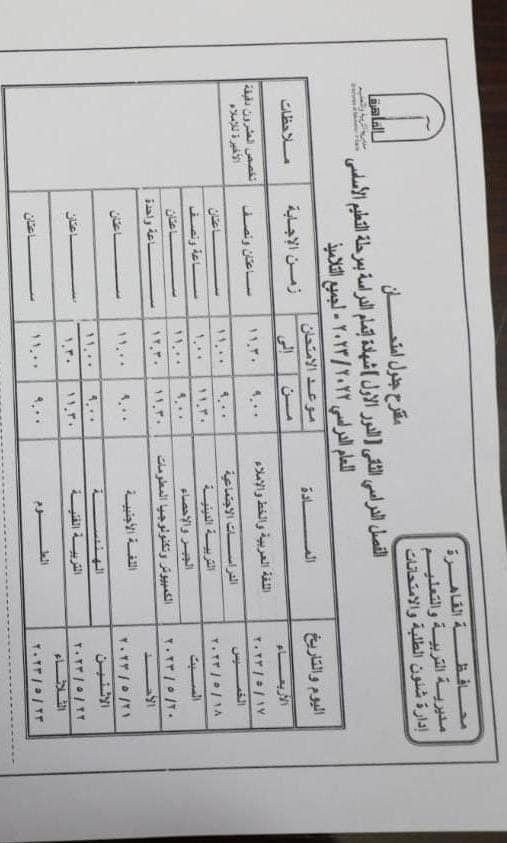 محافظة القاهرة
مديرية التربية والتعليم
إدارة شئون الطلبة والامتحانات
القاهرة
مديرية التربية والتعليم
مقترح جدول امتحان
الفصل الدراسي الثاني (الدور الأول) شهادة إتمام الدراسة بمرحلة التعليم الأساسي
للعام الدراسي ٢٠٢٢/٢٠٢٣ - لجميع التلاميذ
اليوم والتاريخ المادة موعد الامتحان زمن الإجابة ملاحظات
من إلى
الأربعاء ١٧ / ٥ / ٢٠٢٣ اللغة العربية والخط والإملاء ٩,٠٠ ١١,٣٠ ساعتان ونصف تخصص العشرون دقيقة الأخيرة للإملاء
الخميس ١٨ / ٥ / ٢٠٢٣ الدراسات الاجتماعية ٩,٠٠ ١١,٠٠ ساعتان
التربية الدينية ١١,٣٠ ١,٠٠ ساعة ونصف
السبت ٢٠ / ٥ / ٢٠٢٣ الجبر والإحصاء ٩,٠٠ ١١,٠٠ ساعتان
الكمبيوتر وتكنولوجيا المعلومات ١١,٣٠ ١٢,٣٠ ساعة واحدة
الأحد ٢١ / ٥ / ٢٠٢٣ اللغة الأجنبية ٩,٠٠ ١١,٠٠ ساعتان
الاثنين ٢٢ / ٥ / ٢٠٢٣ الهندسة ٩,٠٠ ١١,٠٠ ساعتان
التربية الفنية ١١,٣٠ ١,٣٠
الثلاثاء ٢٣ / ٥ / ٢٠٢٣ العلوم ٩,٠٠ ١١,٠٠ ساعتان